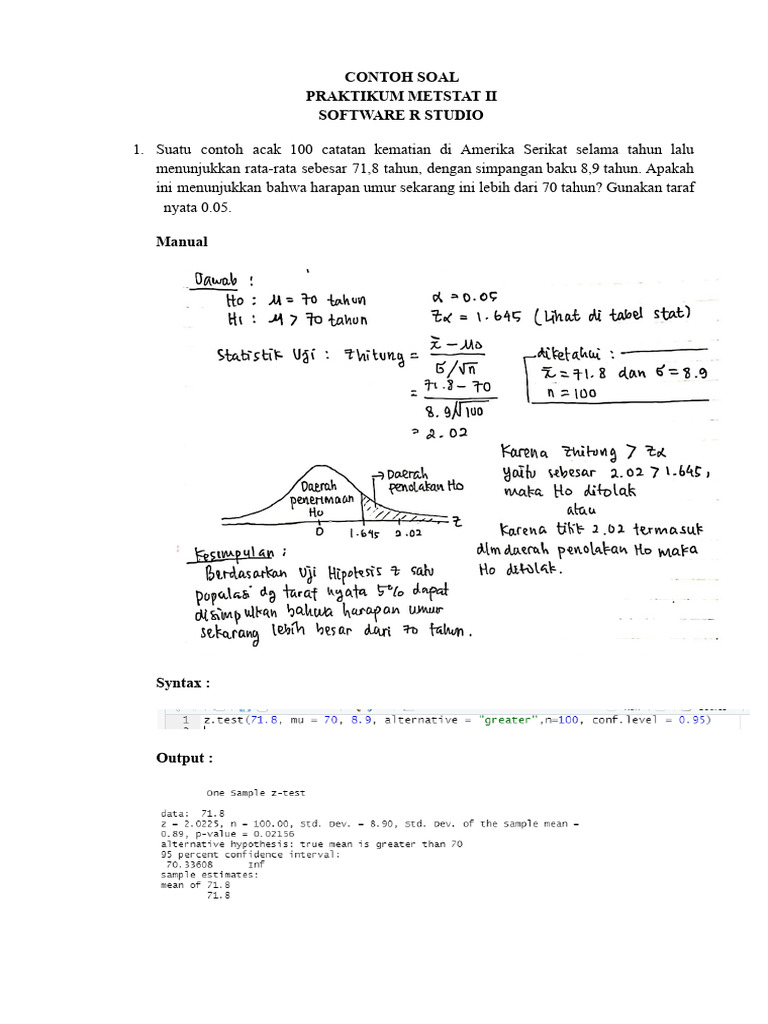 CONTOH SOAL
PRAKTIKUM METSTAT II
SOFTWARE R STUDIO
1. Suatu contoh acak 100 catatan kematian di Amerika Serikat selama tahun lalu
menunjukkan rata-rata sebesar 71,8 tahun, dengan simpangan baku 8,9 tahun. Apakah
ini menunjukkan bahwa harapan umur sekarang ini lebih dari 70 tahun? Gunakan taraf
nyata 0.05.
Manual
Jawab :
Ho : μ = 70 tahun
H1 : μ > 70 tahun
α = 0.05
Zα = 1.645 (Lihat di tabel stat)
Statistik Uji : Zhitung = x̄ - μo
σ/√n
= 71.8 - 70
8.9/√100
= 2.02
diketahui :
x̄ = 71.8 dan σ = 8.9
n = 100
Karena Zhitung > Zα
yaitu sebesar 2.02 > 1.645,
maka Ho ditolak
atau
Karena titik 2.02 termasuk
dlm daerah penolakan Ho maka
Ho ditolak.
Daerah
penerimaan
Ho
Daerah
penolakan Ho
0 1.645 2.02 Z
Kesimpulan :
Berdasarkan Uji Hipotesis Z satu
populasi dg taraf nyata 5% dapat
disimpulkan bahwa harapan umur
sekarang lebih besar dari 70 tahun.
Syntax :
1 z.test(71.8, mu = 70, 8.9, alternative = "greater",n=100, conf.level = 0.95)
Output :
One Sample z-test
data: 71.8
z = 2.0225, n = 100.00, Std. Dev. = 8.90, Std. Dev. of the sample mean =
0.89, p-value = 0.02156
alternative hypothesis: true mean is greater than 70
95 percent confidence interval:
70.33608 Inf
sample estimates:
mean of 71.8
71.8